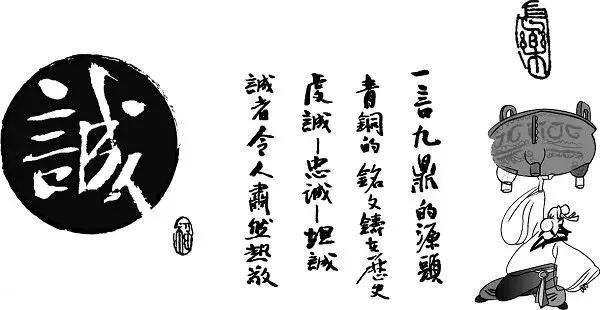 長樂
一言九鼎的源頭
青銅的銘文鑄在歷史
虔誠—忠誠—坦誠
誠者令人肅然起敬
誠